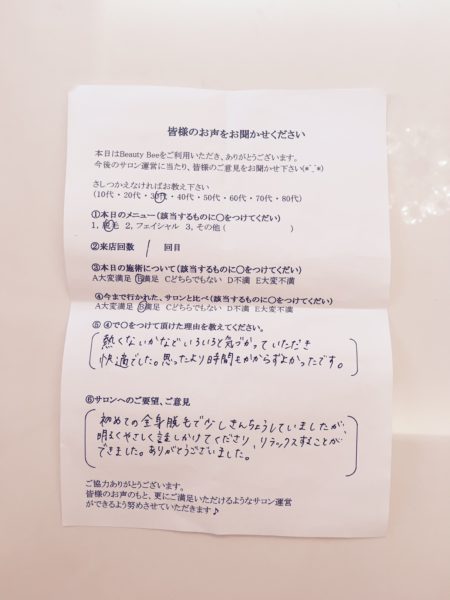 皆様のお声をお聞かせください
本日はBeauty Beeをご利用いただき、ありがとうございます。
今後のサロン運営に当たり、皆様のご意見をお聞かせ下さい(*^_^*)
さしつかえなければお教え下さい
(10代・20代・30代・40代・50代・60代・70代・80代)
①本日のメニュー(該当するものに〇をつけてくだい)
1, 脱毛 2, フェイシャル 3, その他 ( )
②来店回数 1 回目
③本日の施術について(該当するものに〇をつけてくだい)
A大変満足 B満足 Cどちらでもない D不満 E大変不満
④今まで行かれた、サロンと比べ(該当するものに〇をつけてくだい)
A大変満足 B満足 Cどちらでもない D不満 E大変不満
⑤ ④で〇をつけて頂けた理由を教えてください。
熱くないかなどいろいろと気づかっていただき
快適でした。思ったより時間もかからずよかったです。
⑥サロンへのご要望、ご意見
初めての全身脱毛で少しきんちょうしていましたが、
明るくやさしく話しかけてくださり、リラックスすることが
できました。ありがとうございました。
ご協力ありがとうございます。
皆様のお声のもと、更にご満足いただけるようなサロン運営
ができるよう努めさせていただきます♪